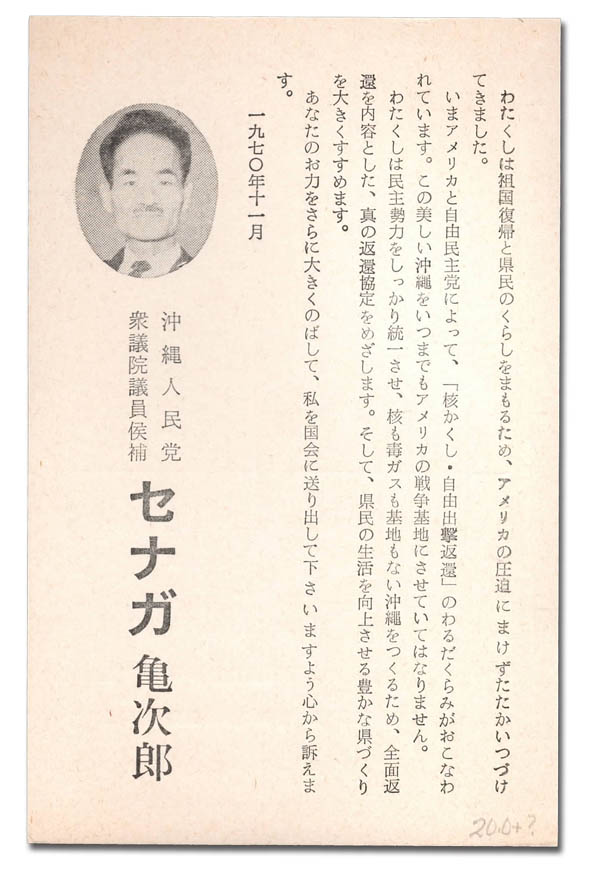 わたくしは祖国復帰と県民のくらしをまもるため、アメリカの圧迫にまけずたたかいつづけ
てきました。
いまアメリカと自由民主党によって、「核かくし・自由出撃返還」のわるだくらみがおこなわ
れています。この美しい沖縄をいつまでもアメリカの戦争基地にさせていてはなりません。
わたくしは民主勢力をしっかり統一させ、核も毒ガスも基地もない沖縄をつくるため、全面返
還を内容とした、真の返還協定をめざします。そして、県民の生活を向上させる豊かな県づくり
を大きくすすめます。
あなたのお力をさらに大きくのばして、私を国会に送り出して下さいますよう心から訴えま
す。
一九七〇年十一月
沖縄人民党
衆議院議員侯補
セナガ亀次郎
20.0+?